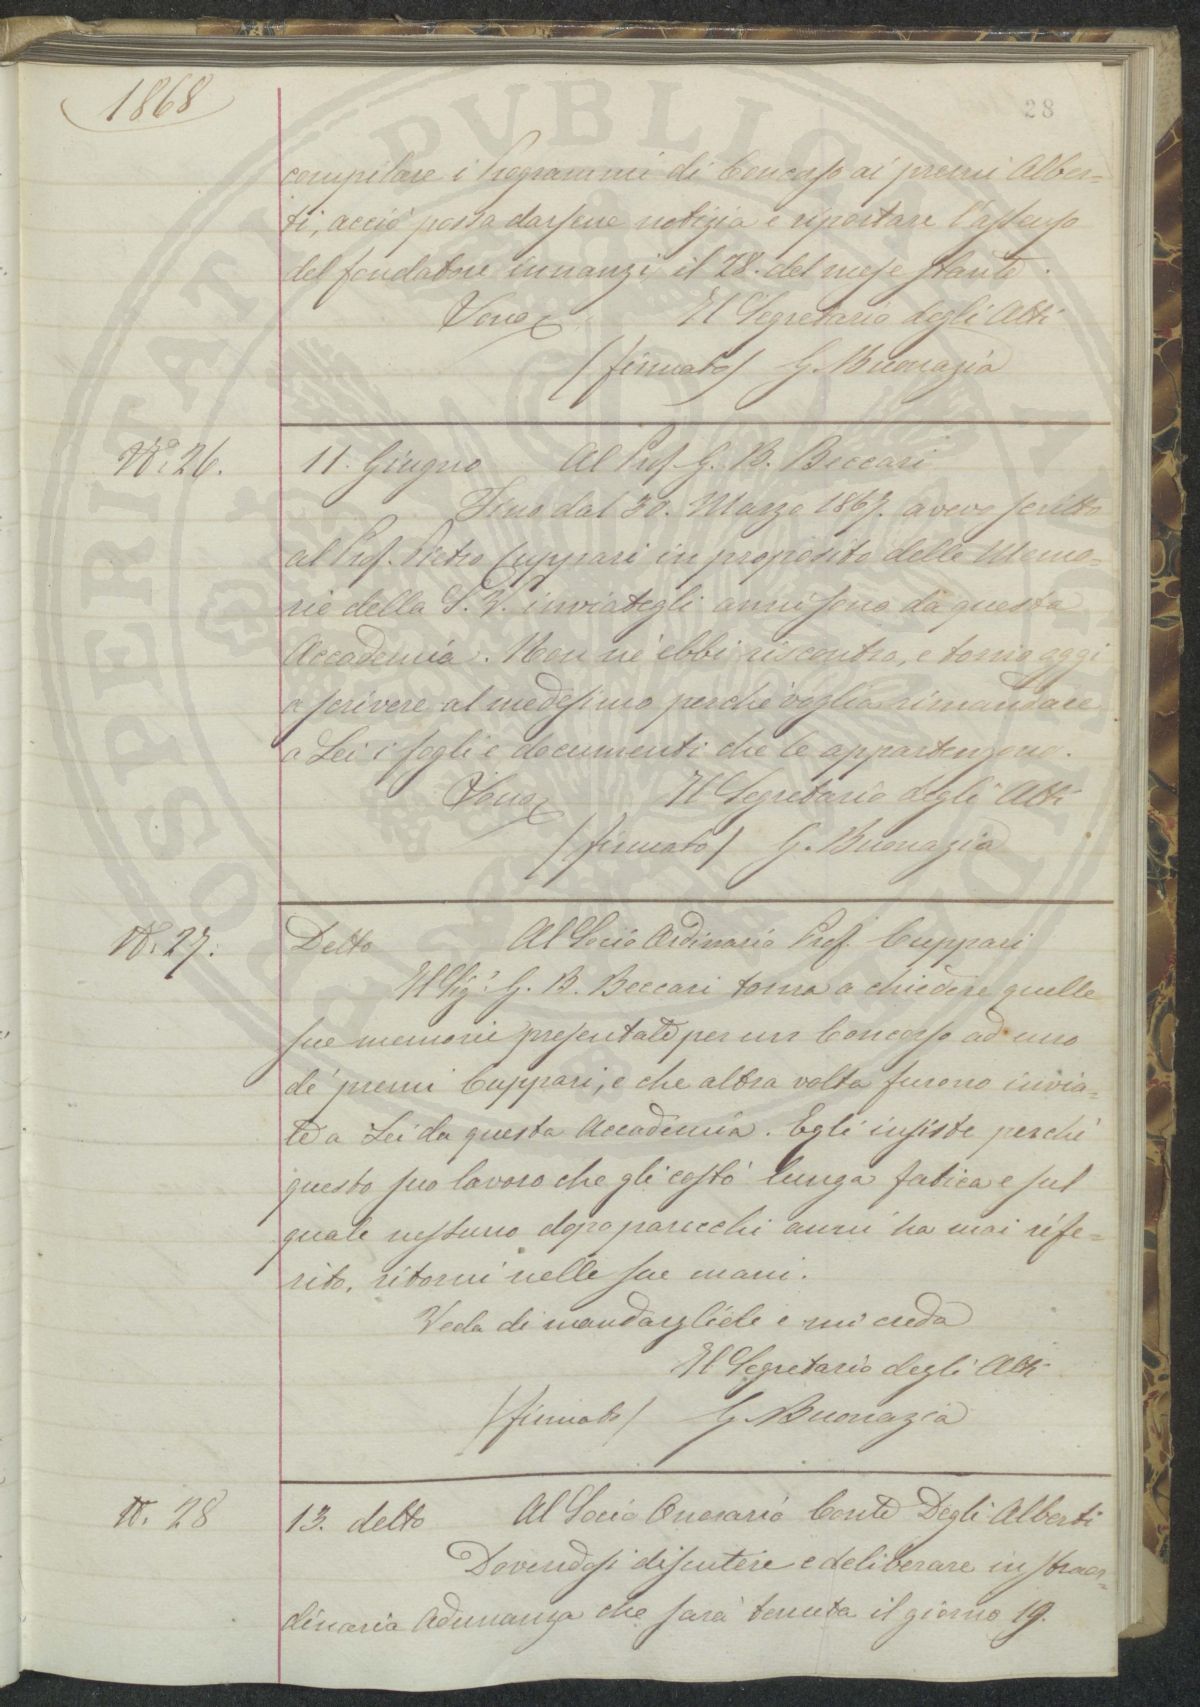 1868
28
compilare i Programmi di Concorso ai premi Alber=
ti, acciò possa darsene notizia e riportare l'assenso
del fondatore innanzi il 28. del mese stante.
Il Segretario degli Atti
/firmato/ G. Buonazia
N.° 26.
11. Giugno Al Prof. G. B. Beccari
Fino dal 30. Marzo 1867. avevo scritto
al Prof. Pietro Cuppari in proposito delle Memo=
rie della S. V. inviategli anni sono da questa
Accademia. Non nè ebbi riscontro, e torno oggi
a scrivere al medesimo perchè voglia rimandare
a Lei i fogli e documenti che le appartengono.
Il Segretario degli Atti
/firmato/ G. Buonazia
N. 27.
Detto Al Socio Ordinario Prof. Cuppari
Il Sig.r G. B. Beccari torna a chiedere quelle
sue memorie presentate per un Concorso ad uno
de' premi Cuppari, e che altra volta furono invia=
te a Lei da questa Accademia. Egli insiste perchè
questo suo lavoro che gli costò lunga fatica e sul
quale nessuno dopo parecchi anni ha mai rife=
rito, ritorni nelle sue mani.
Veda di mandargliele e mi creda
Il Segretario degli Atti
/firmato/ G. Buonazia
N. 28
13. detto Al Socio Onorario Conte Degli Alberti
Dovendosi discutere e deliberare in straor=
dinaria Adunanza che sarà tenuta il giorno 19.
PROSPERITATI PUBLICAE